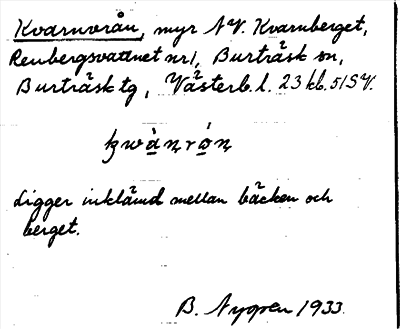 Kvarnvrån, myr NV. Kvarnberget,
Renbergsvattnet nr 1, Burträsk sn,
Burträsk tg, Västerb. l. 23 kb. 51 SV.
ligger inklämd mellan bäcken och
berget.
B. Nygren 1933.